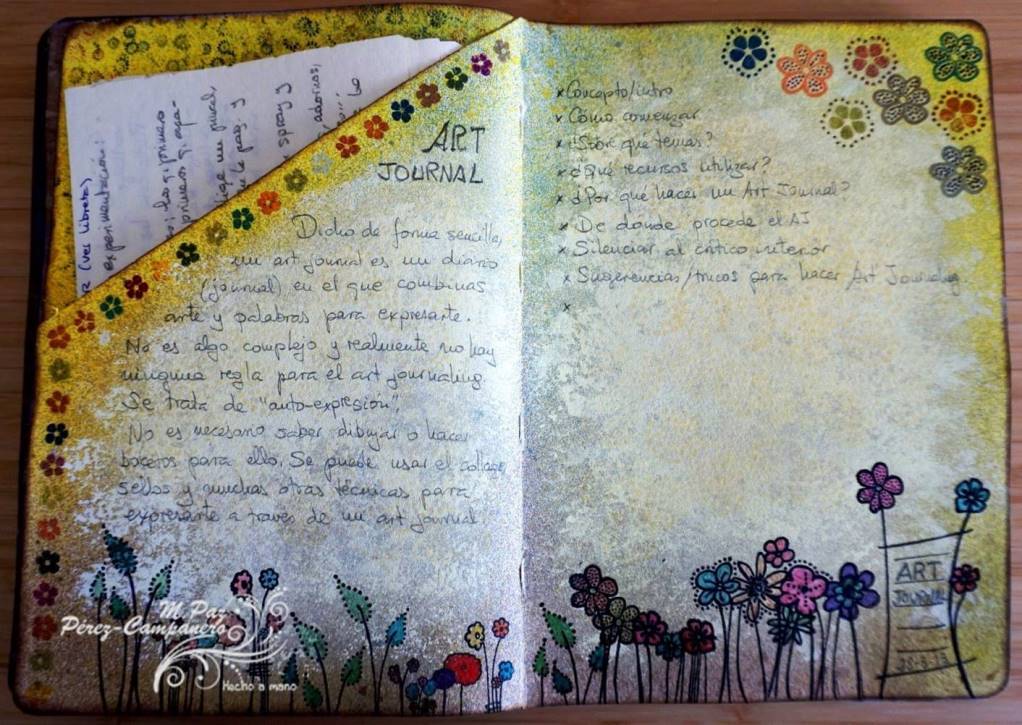 R (ver libreta)
experimentación:
spray y
ART
JOURNAL
Dicho de forma sencilla,
un art journal es un diario
(journal) en el que combinas
arte y palabras para expresarte.
No es algo complejo y realmente no hay
ninguna regla para el art journaling.
Se trata de "auto-expresión".
No es necesario saber dibujar o hacer
bocetos para ello. Se puede usar el collage,
sellos y muchas otras técnicas para
expresarte a través de un art journal.
x Concepto/intro
x Cómo comenzar
x ¿Sobre qué temas?
x ¿Qué recursos utilizar?
x ¿Por qué hacer un Art Journal?
x De dónde procede el AJ
x Silenciar al crítico interior
x Sugerencias/trucos para hacer Art Journaling
x
ART
JOURNAL
M. Paz
Pérez-Campanero
Hecho a mano